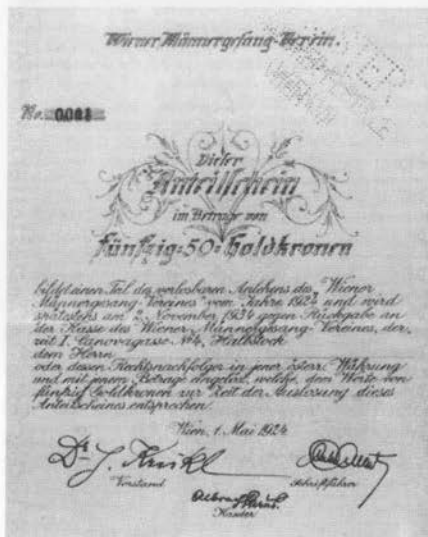 Wiener Männergesang-Verein.
No. 0021
Dieser
Anteilschein
im Betrage von
fünfzig=50=Goldkronen
bildet einen Teil des verlosbaren Anlehens des "Wiener
Männergesang-Vereines" vom Jahre 1924 und wird
spätestens am 2. November 1934 gegen Rückgabe an
der Kasse des Wiener Männergesang-Vereines, der-
zeit I. Canovagasse No 4, Halbstock
dem Herrn
oder dessen Rechtsnachfolger in jener österr. Währung
und mit jenem Betrage eingelöst, welche dem Werte von
fünfzig Goldkronen zur Zeit der Auslosung dieses
Anteilscheines entsprechen.
Wien, 1. Mai 1924
Dr. J. Krükl
Vorstand Schriftführer
Kassier